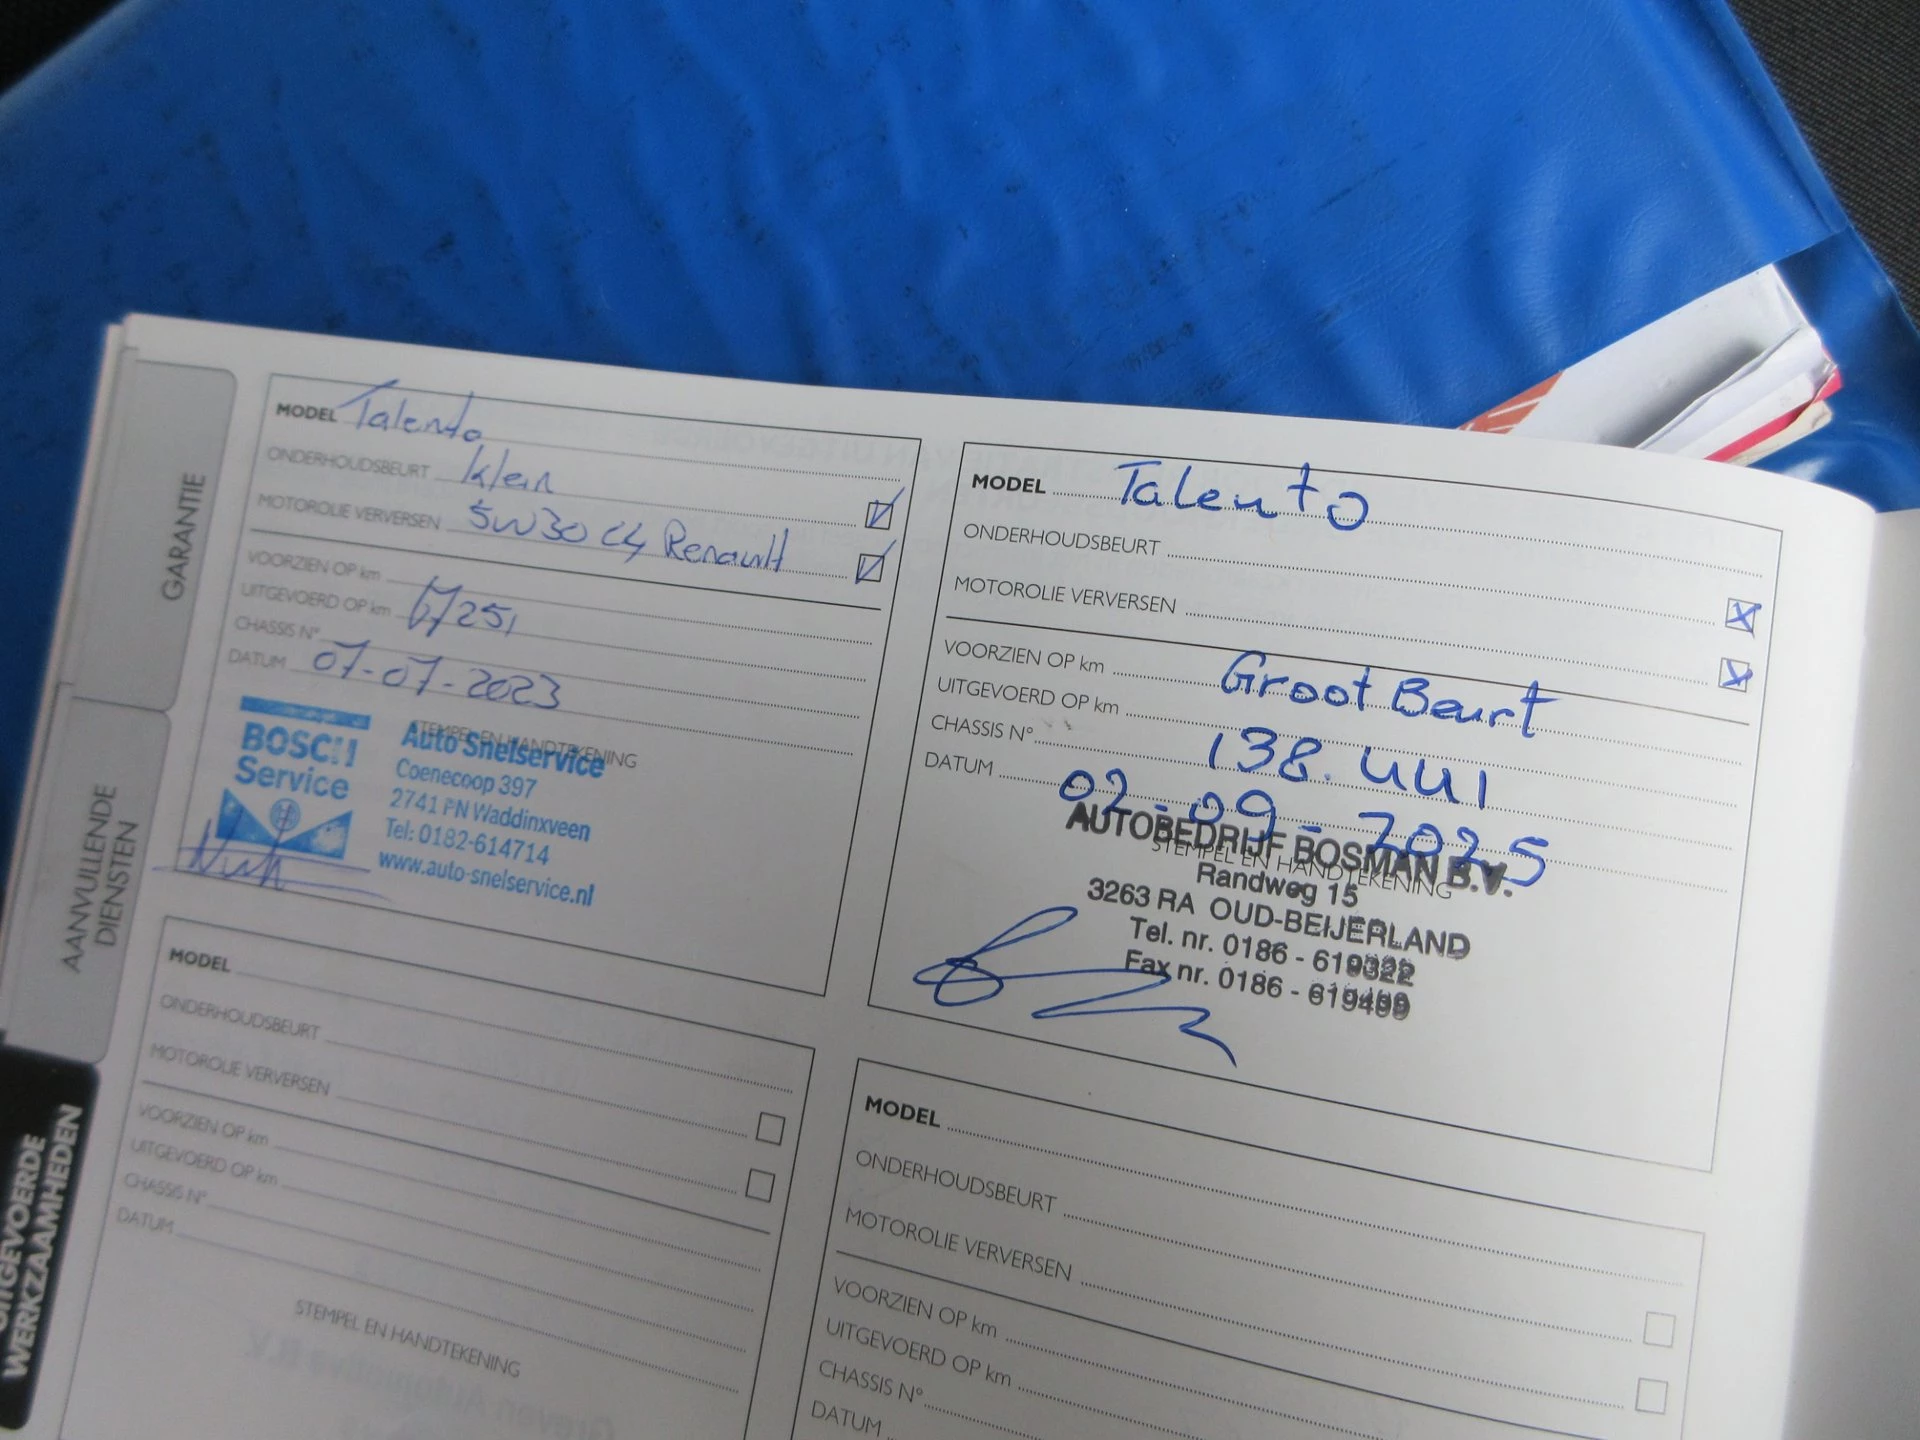 GARANTIE
AANVULLENDE
DIENSTEN
WERKZAAMHEDEN
MODEL Talento
ONDERHOUDSBEURT klein
MOTOROLIE VERVERSEN 5W30 C4 Renault
VOORZIEN OP km
UITGEVOERD OP km
CHASSIS N°
DATUM 07-07-2023
STEMPEL EN HANDTEKENING
BOSCH
Service
Auto Snelservice
Coenecoop 397
2741 PN Waddinxveen
Tel: 0182-614714
www.auto-snelservice.nl
MODEL Talento
ONDERHOUDSBEURT
MOTOROLIE VERVERSEN
VOORZIEN OP km Groot Beurt
UITGEVOERD OP km 138.441
CHASSIS N°
DATUM 02-09-2025
STEMPEL EN HANDTEKENING
AUTOBEDRIJF BOSMAN B.V.
Randweg 15
3263 RA OUD-BEIJERLAND
Tel. nr. 0186 - 619322
Fax nr. 0186 -
MODEL
ONDERHOUDSBEURT
MOTOROLIE VERVERSEN
VOORZIEN OP km
UITGEVOERD OP km
CHASSIS N°
DATUM
STEMPEL EN HANDTEKENING
MODEL
ONDERHOUDSBEURT
MOTOROLIE VERVERSEN
VOORZIEN OP km
UITGEVOERD OP km
CHASSIS N°
DATUM